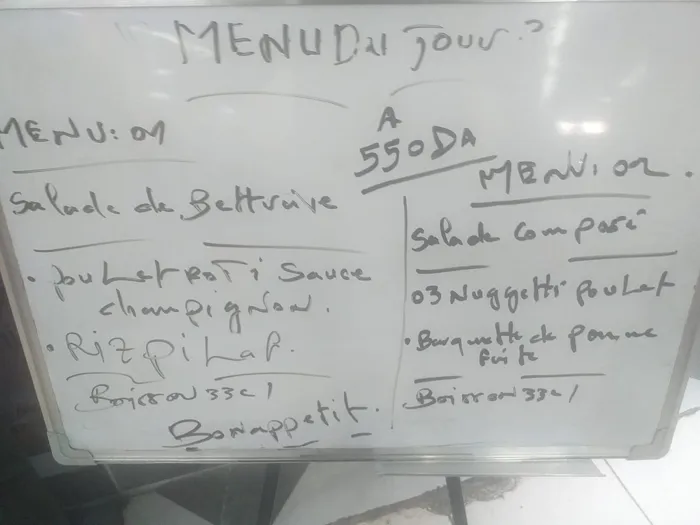 MENU Du Jour:
MENU: 01
Salade de Bettrave
• pouLet RoTi Sauce
champigNon.
• Riz piLaf.
Boisson 33cl
Bon appetit.
A
550DA
MENU: 02.
Salade Composé
03 Nuggetti pouLet
• Barquette de pomme
frite
Boisson 33cl